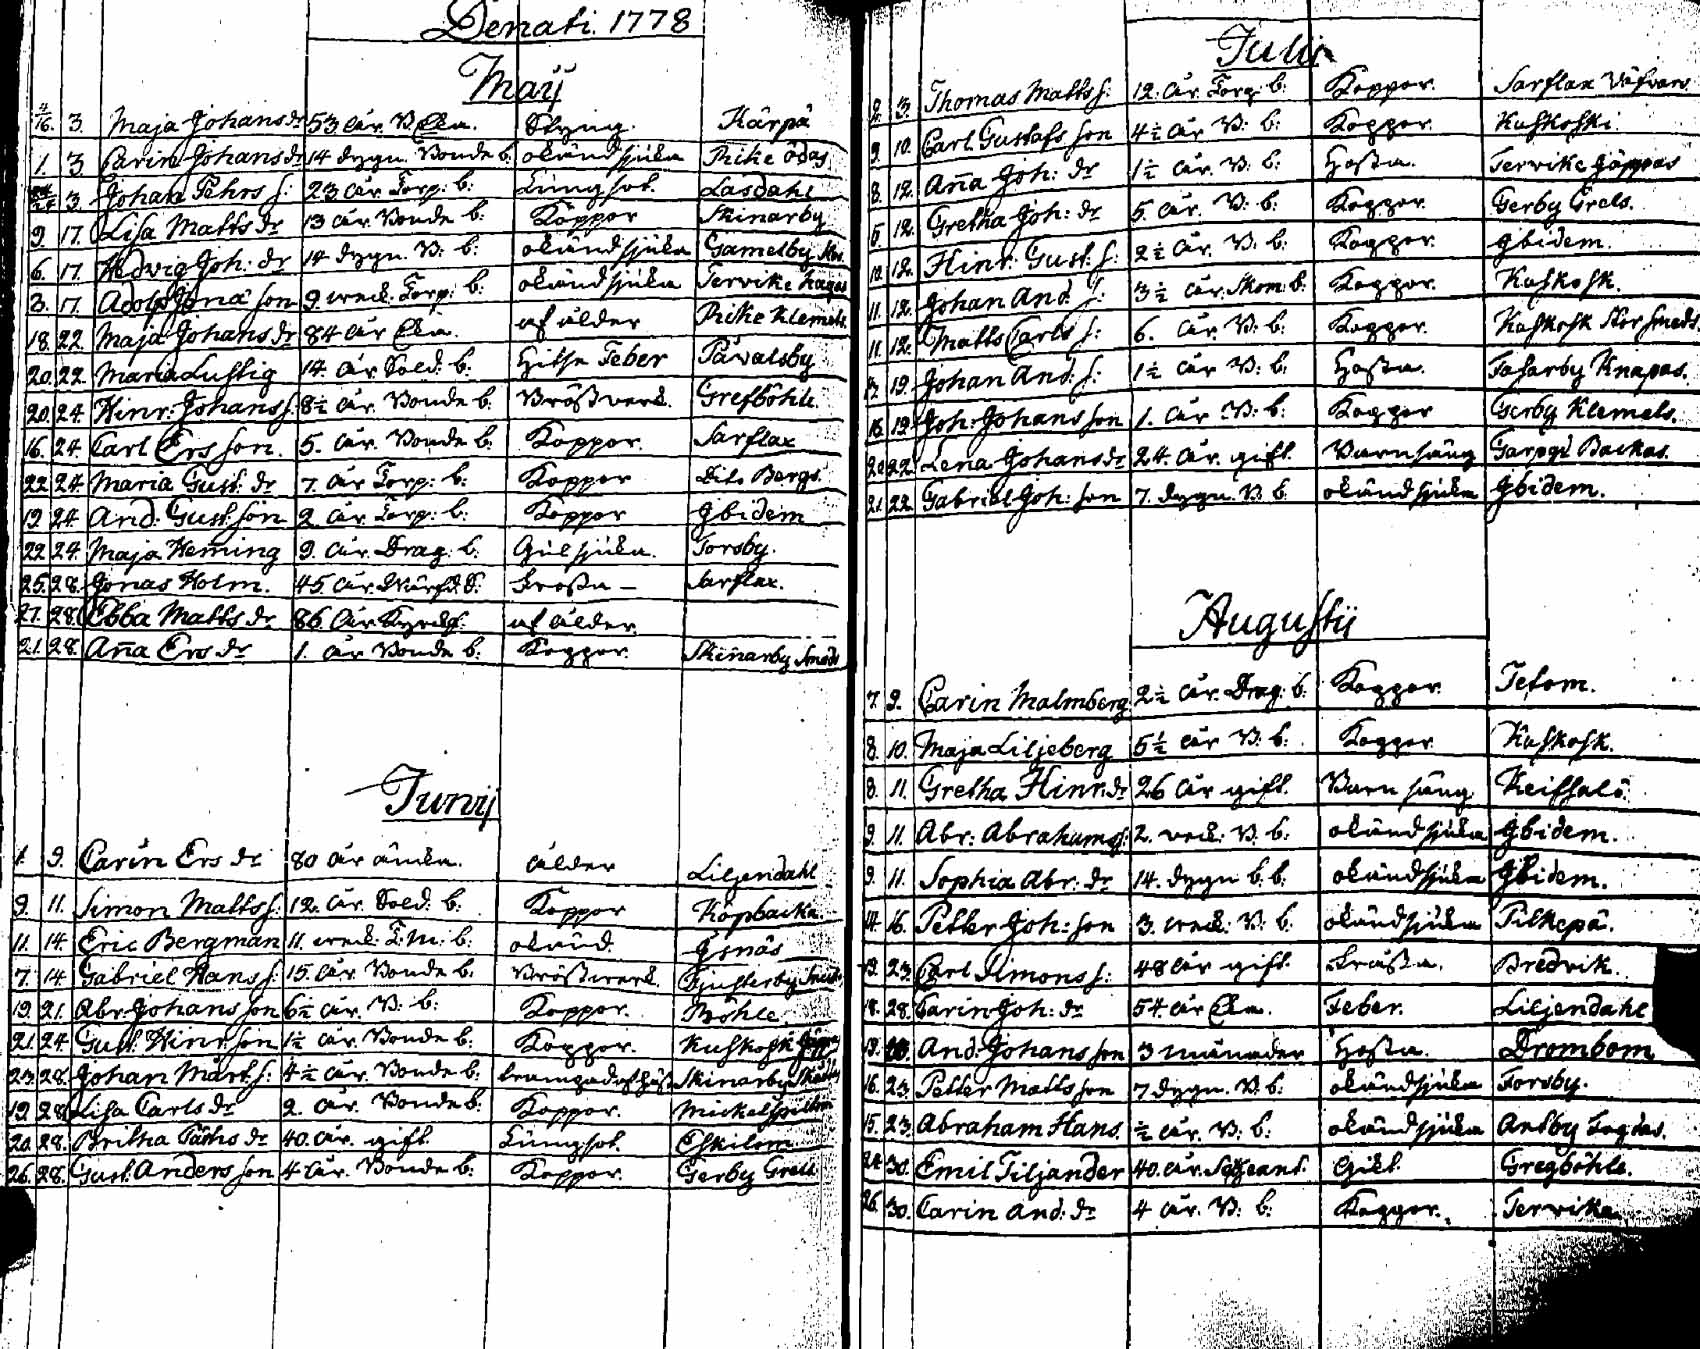 Denati. 1778
Maij
4/16. 3. Maja Johans dr 53 år. Enk. Styng. Kärpä
1. 3. Carin Johans dr 14 dygn. Bonde b. okänd sjuka Rike Ödas
3. Johan Pehrs s: 23 år Torp: b: Lungsot. Lasdahl
9. 17. Lisa Matts dr 13 år Bonde b: Koppor Skinarby
6. 17. Hedvig Joh: dr 14 dygn. B: b: okänd sjuka Gamelby
3. 17. Adolf Jona son 9. weck. Torp: b: okänd sjuka Tervike
18. 22. Maja Johans dr 84 år Enk. af ålder Rike Klemets
20. 22. Maria Lustig 14. år Sold: b: Hitse Feber Påvalsby
20. 24. Hinr: Johans s. 8½ år. Bonde b: Bröstverk. Grefböhle.
16. 24. Carl Ers son. 5. år. Bonde b: Koppor. Sarflax
22. 24. Maria Gust: dr 7. år Torp: b: Koppor Dito Bergs.
19. 24 And: Gust: son 2 år. Torp: b: Koppor Ibidem
22. 24. Maja Heming 9. år. Drag: b: Gulsjuka. Torsby.
25. 28. Jonas Holm. 45. år. Frossa – Sarflax.
27. 28. Ebba Matts dr 86. år af ålder.
21. 28. Aña Ers dr 1. år Bonde b: Koppor. Skinarby Smeds
Junij
1. 9. Carin Ers dr 80 år änka. ålder Liljendahl
9. 11. Simon Matts s: 12. år. Sold: b: Koppor Köpbacka
11. 14. Eric Bergman 11. weck: b: okänd. Isnäs
7. 14. Gabriel Hans s: 15. år. Bonde b. Bröstwerk.
19. 21. Abr: Johans son 6½ år. B: b: Koppor. Böhle.
21. 24. Gust: Hinr: son 1½ år. Bonde b: Koppor. Kuskosk
23 28. Johan Mårt: s: 4½ år. Bonde b: Skinarby
19. 28 Lisa Carls dr 2. år. Bonde b: Koppor. Mickelspiltom
20. 28. Britha Påhls dr 40. år. gift. Lungsot. Eskilom
26. 28. Gust: Anders son 4 år. Bonde b: Koppor. Gerby Grels
Julij
2. 3. Thomas Matts s: 12. år. Torp: b: Koppor. Sarflax
9. 10. Carl Gustafs son 4½ år B: b: Koppor. Kuskoski.
8. 12. Aña Joh: dr 1½ år. B: b: Hosta. Tervike Jäppas
5. 12. Gretha Joh: dr 5. år. B: b: Koppor. Gerby Grels.
10. 12. Hinr: Gust: s: 2½ år. B: b: Koppor. Ibidem.
11. 12. Johan And: s: 3½ år. b: Koppor. Kuskosk.
11. 12. Matts Carls s: 6. år. B: b: Koppor. Kuskosk Stor Smeds
19. Johan And: s: 1½ år B: b: Hosta. Tasarby Knapas.
16. 19. Joh: Johans son 1. år B: b: Koppor Gerby Klemets.
20. 22. Lena Johans dr 24. år. gift. Barnsäng Garpgd Backas.
21. 22. Gabriel Joh: son 7. dygn. B. b. okänd sjuka Ibidem.
Augustij
7. 9. Carin Malmberg 2½ år. Drag: b: Koppor. Tetom.
8. 10. Maja Liljeberg 5½ år B: b: Koppor. Kuskosk.
8. 11. Gretha Hinr: dr 26 år gift. Barn säng Keitsalo.
9. 11. Abr: Abrahams s: 2. weck: B. b: okänd sjuka Ibidem.
9. 11. Sophia Abr: dr 14. dygn B. b: okänd sjuka Ibidem.
14. 16. Petter Joh: son 3. weck: B: b: okänd sjuka Pilkepä.
19. 23. Carl Simons s: 48 år gift. Frossa. Bredvik.
18. 28. Carin Joh: dr 54. år Enk. Feber. Liljendahl
And: Johans son 3 månader Hosta. Drombom
16. 23. Petter Matts son 7 dygn. B. b: okänd sjuka Forsby.
15. 23. Abraham Hans. ½ år. B: b: okänd sjuka Antby Fogdas.
24. 30. Emil Tiljander 40. år. Sergeant. Gikt. Gregböhle.
26. 30. Carin And: dr 4 år. B: b: Koppor. Tervike